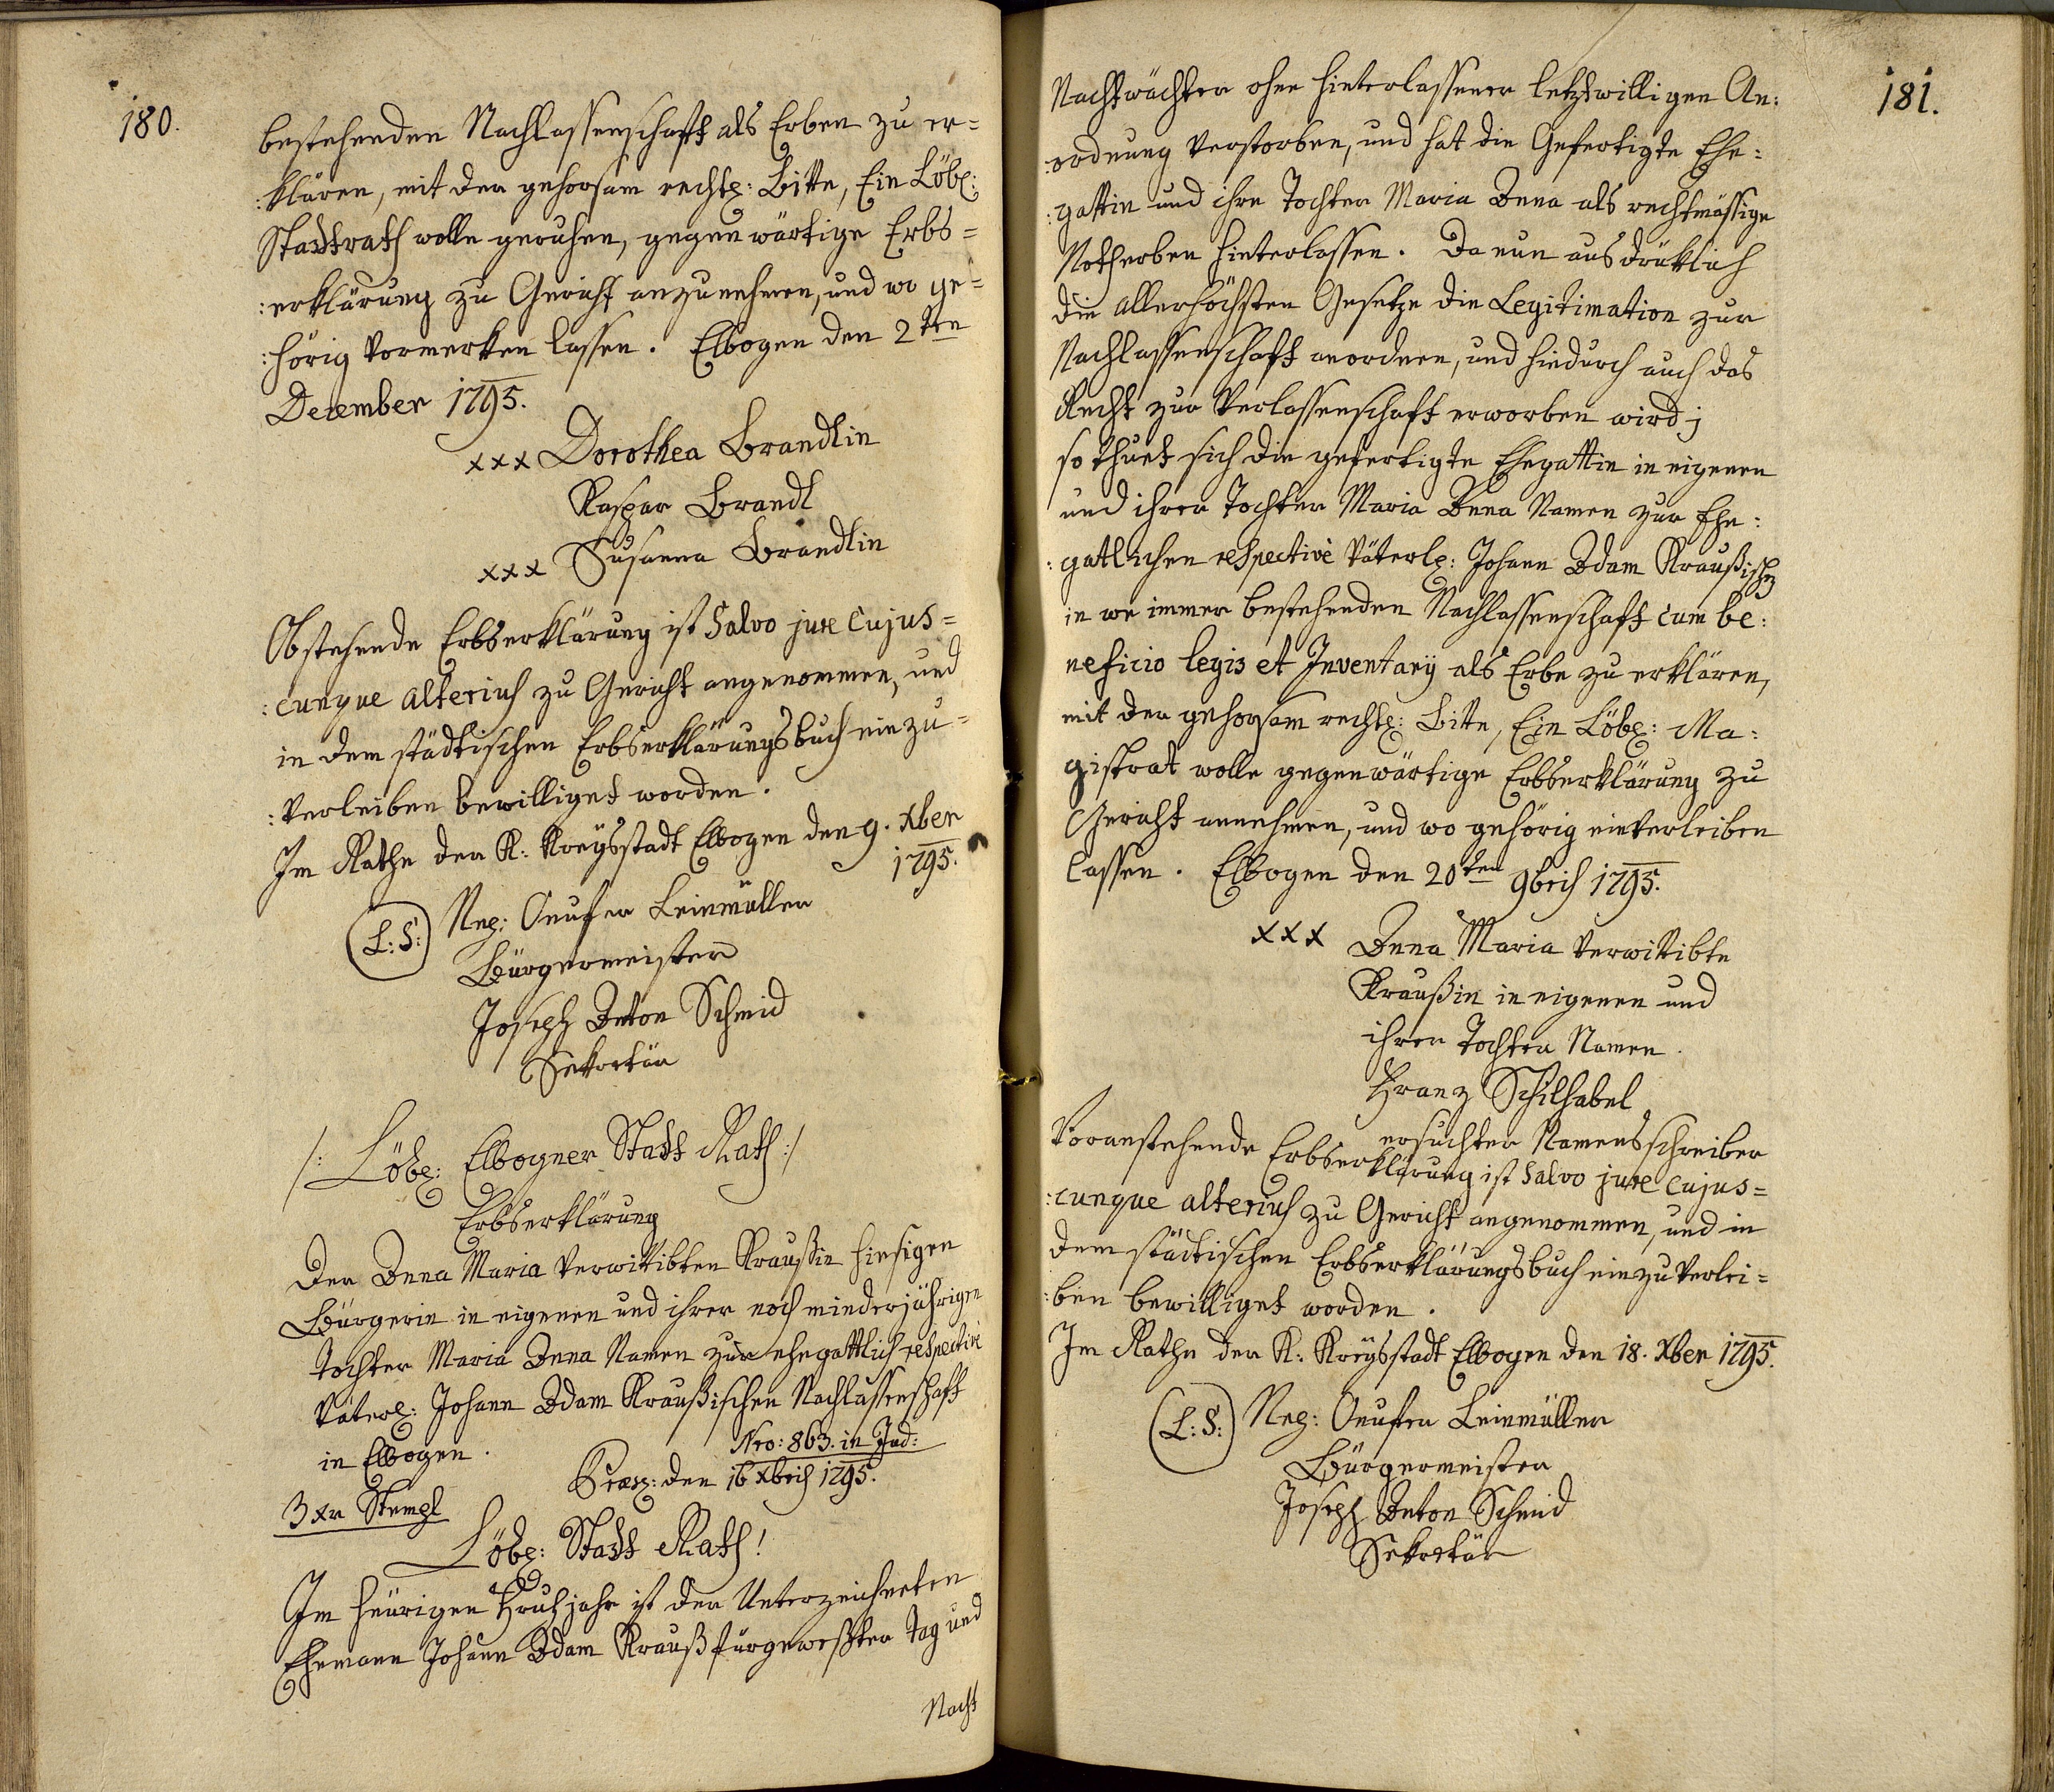 180.
bestehenden Nachlassenschaft als Erben zu er=
:klären, mit der gehorsam rechtl: Bitte, Ein Löbl:
Stadtrath wolle geruhen, gegenwärtige Erbs=
:erklärung zu Gericht anzunehmen, und wo ge=
:hörig vormerken lassen. Elbogen den 2ten
December 1795.
xxx Dorothea Brandlin
Kaspar Brandl
xxx Susanna Brandlin
Obstehende Erbserklärung ist Salvo jure Cujus=
:cunque alterius zu Gericht angenommen, und
in dem städtischen Erbserklärungsbuch einzu=
:verleiben bewilliget worden.
Im Rathe der K: Kreysstadt Elbogen den 9. Xber
1795.
(L:S:) Onufer Leinmüller
Bürgermeister
Joseph Anton Schmid
Sekretär
/: Löbl: Elbogner Stadt Rath :/
Erbserklärung
Der Anna Maria verwittibten Kraußin hiesigen
Bürgerin in eigenen und ihrer noch minderjährigen
Tochter Maria Anna Namen zur ehegattlich respective
väterl: Johann Adam Kraußischen Nachlassenschaft
in Elbogen.
Nro: 863. in Jud:
Præs: den 16 Xbris 1795.
3 xr Stempl
Löbl: Stadt Rath!
Im heurigen Fruhjahr ist der Unterzeichneten
Ehemann Johann Adam Krauß fürgeweßter Tag und
Nacht
181.
Nachtwächter ohne hinterlassener letztwilligen An:
:ordnung verstorben, und hat die Gefertigte Ehe:
:gattin und ihre Tochter Maria Anna als rechtmässige
Notherben hinterlassen. Da nun ausdrüklich
die allerhöchsten Gesetze die Legitimation zur
Nachlassenschaft anordnen, und hiedurch auch das
Recht zur Verlassenschaft erworben wird;
so thuet sich die gefertigte Ehegattin in eigenen
und ihrer Tochter Maria Anna Namen zur Ehe:
:gatlichen respective väterl: Johann Adam Kraußischen
in we immer bestehenden Nachlassenschaft cum be:
neficio legis et Inventarij als Erbe zu erklären,
mit der gehorsam rechtl: Bitte, Ein Löbl: Ma:
gistrat wolle gegenwärtige Erbserklärung zu
Gericht annehmen, und wo gehörig einverleiben
lassen. Elbogen den 20ten 9bris 1795.
xxx Anna Maria verwittibte
Kraußin in eigenen und
ihrer Tochter Namen.
Franz Schilhabel
ersuchter Namensschreiber
Voranstehende Erbserklärung ist Salvo jure Cujus=
:cunque alterius zu Gericht angenommen, und in
dem städtischen Erbserklärungsbuch einzuverlei=
:ben bewilliget worden.
Im Rathe der K: Kreysstadt Elbogen den 18. Xber 1795.
(L:S:) Onufer Leinmüller
Bürgermeister
Joseph Anton Schmid
Sekretär